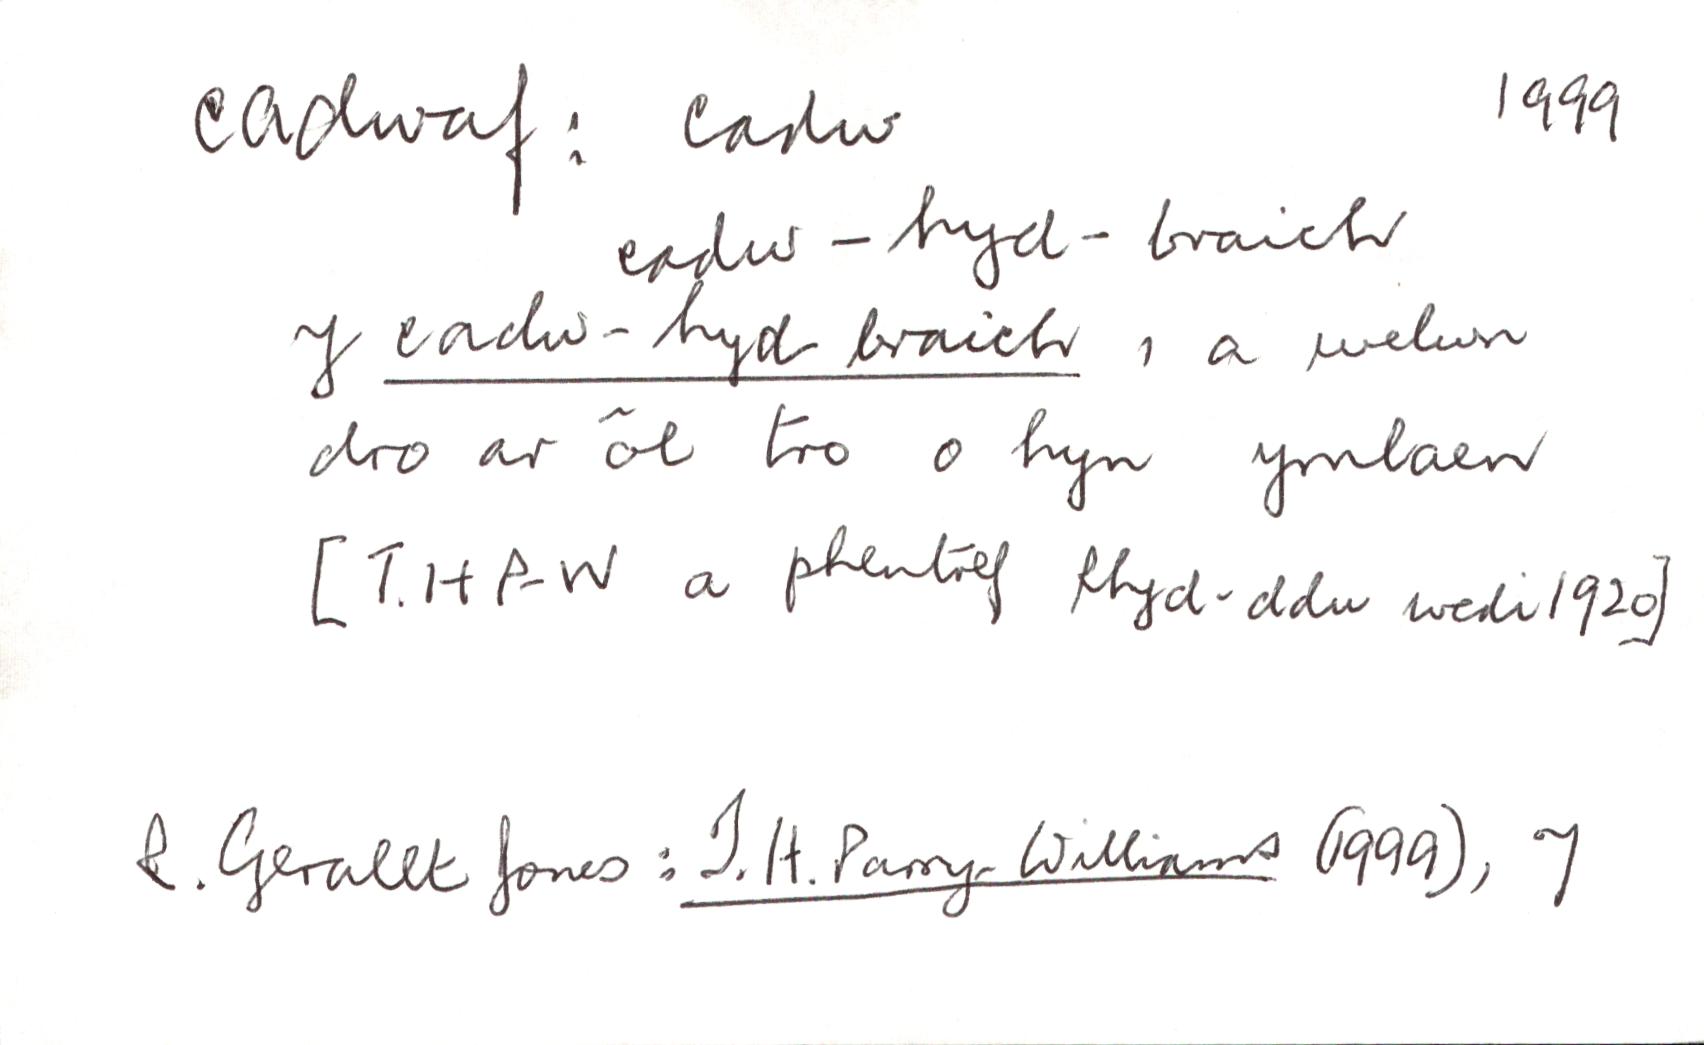 cadwaf: cadw 1999
cadw-hyd-braich
y cadw-hyd braich, a welwn
dro ar ôl tro o hyn ymlaen
[T.H P-W a phentref Rhyd-ddu wedi 1920]
R. Gerallt Jones: T.H. Parry-Williams (1999), 7